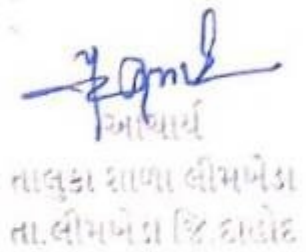 આચાર્ય
તાલુકા શાળા લીમખેડા
તા.લીમખેડા જિ.દાહોદ